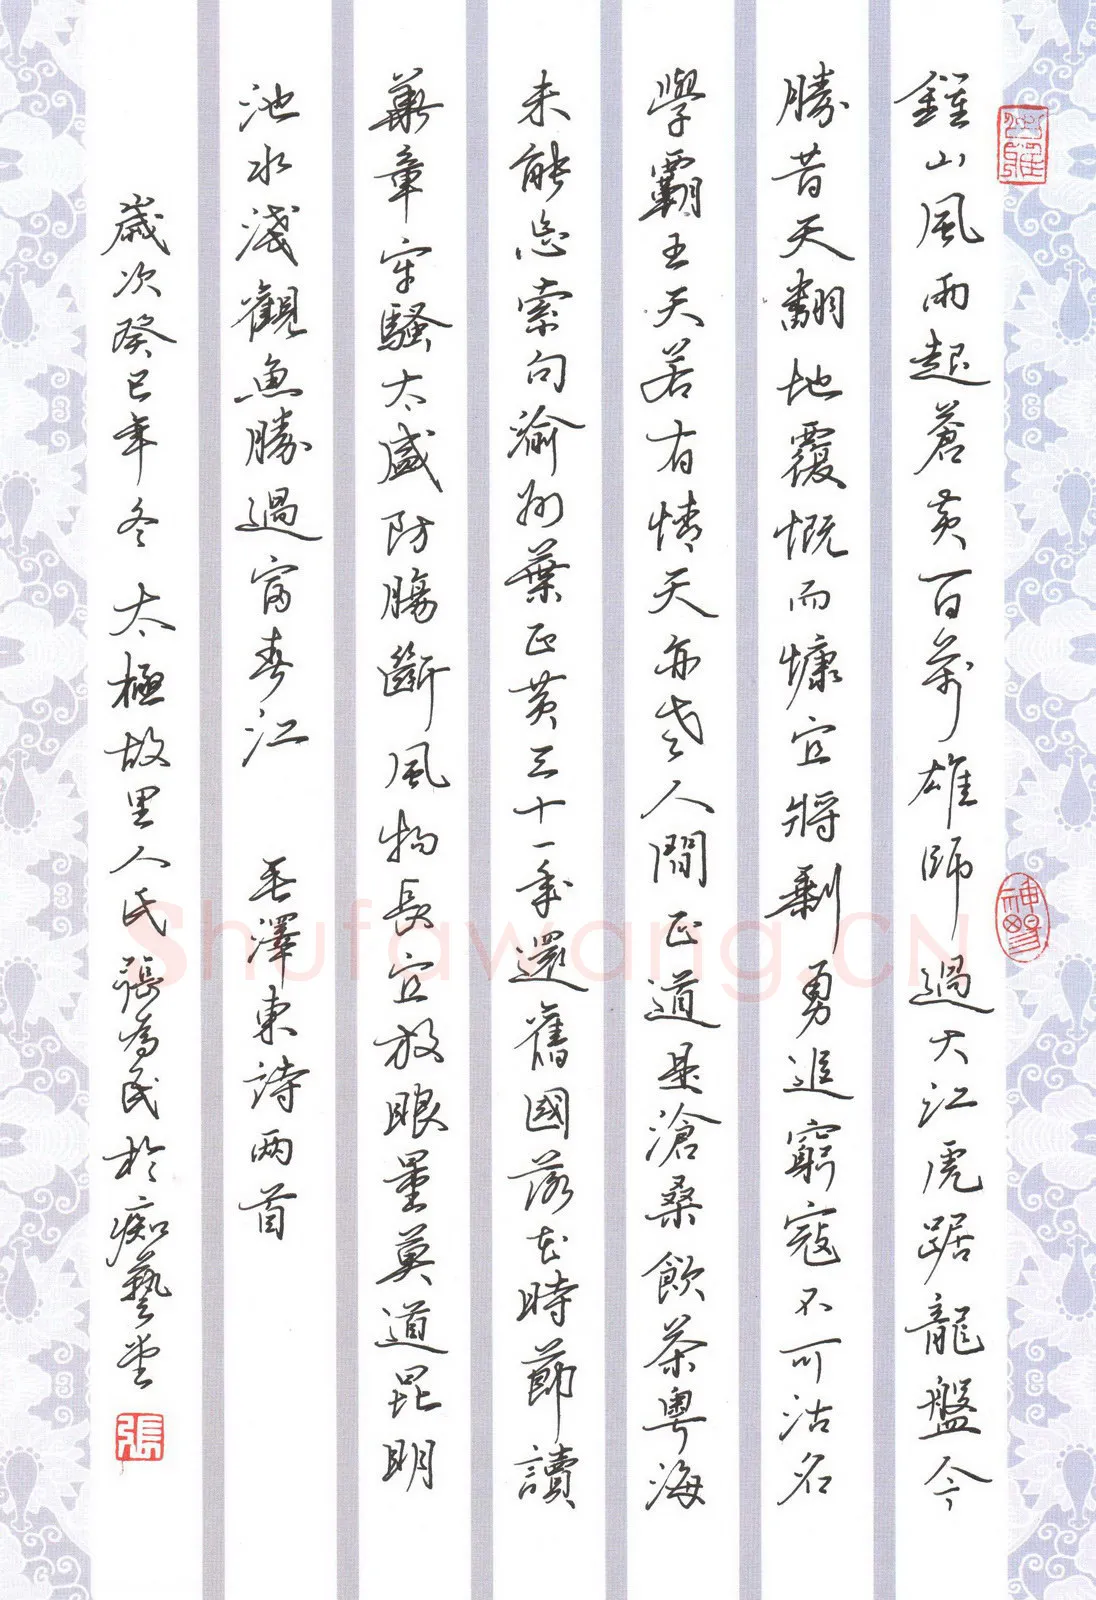 鍾山風雨起蒼黃百萬雄師過大江虎踞龍盤今
勝昔天翻地覆慨而慷宜將剩勇追窮寇不可沽名
學霸王天若有情天亦老人間正道是滄桑飲茶粵海
未能忘索句渝州葉正黃三十一年還舊國落花時節讀
華章牢騷太盛防腸斷風物長宜放眼量莫道昆明
池水淺觀魚勝過富春江 毛澤東詩两首
歲次癸巳年冬 太極故里人民張為民於痴藝堂
張
Shufawang.CN